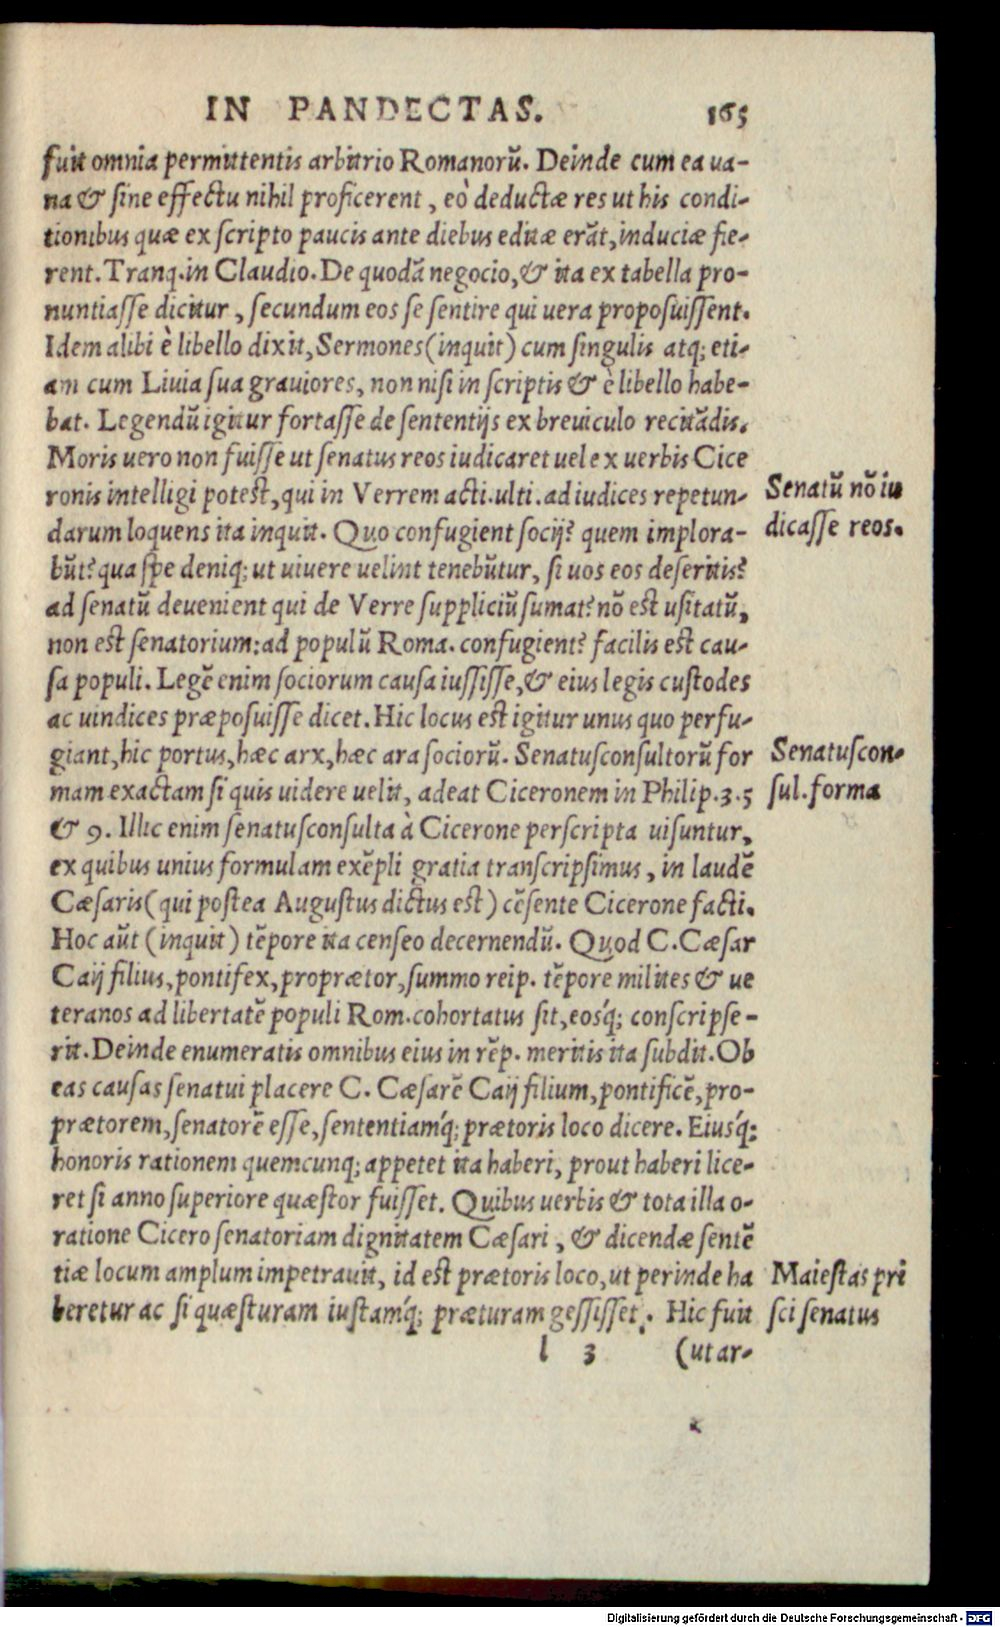 IN PANDECTAS. 165
fuit omnia permittentis arbitrio Romanorũ. Deinde cum ea ua-
na & ſine effectu nihil proficerent, eò deductæ res ut his condi-
tionibus quæ ex ſcripto paucis ante diebus editæ erãt, induciæ fie-
rent. Tranq. in Claudio. De quodã negocio, & ita ex tabella pro-
nuntiaſſe dicitur, ſecundum eos ſe ſentire qui uera propoſuiſſent.
Idem alibi è libello dixit, Sermones (inquit) cum ſingulis atq; eti-
am cum Liuia ſua grauiores, non niſi in ſcriptis & è libello habe-
bat. Legendũ igitur fortaſſe de ſententijs ex breuiculo recitãdis.
Moris uero non fuiſſe ut ſenatus reos iudicaret uel ex uerbis Cice
ronis intelligi poteſt, qui in Verrem acti. ulti. ad iudices repetun-
Senatũ nõ iu
darum loquens ita inquit. Quo confugient ſocij? quem implora-
dicaſſe reos.
bũt? qua ſpe deniq; ut uiuere uelint tenebũtur, ſi uos eos deſeritis?
ad ſenatũ deuenient qui de Verre ſuppliciũ ſumat? nõ eſt uſitatũ,
non eſt ſenatorium: ad populũ Roma. confugient? facilis eſt cau-
ſa populi. Legẽ enim ſociorum cauſa iuſſiſſe, & eius legis cuſtodes
ac uindices præpoſuiſſe dicet. Hic locus eſt igitur unus quo perfu-
giant, hic portus, hæc arx, hæc ara ſociorũ. Senatuſconſultorũ for
Senatuſcon-
mam exactam ſi quis uidere uelit, adeat Ciceronem in Philip. 3. 5
ſul. forma
& 9. Illic enim ſenatuſconſulta à Cicerone perſcripta uiſuntur,
ex quibus unius formulam exẽpli gratia tranſcripſimus, in laudẽ
Cæſaris (qui poſtea Auguſtus dictus eſt) cẽſente Cicerone facti.
Hoc aũt (inquit) tẽpore ita cenſeo decernendũ. Quod C. Cæſar
Caij filius, pontifex, proprætor, ſummo reip. tẽpore milites & ue
teranos ad libertatẽ populi Rom. cohortatus ſit, eoſq́; conſcripſe-
rit. Deinde enumeratis omnibus eius in rẽp. meritis ita ſubdit. Ob
eas cauſas ſenatui placere C. Cæſarẽ Caij filium, pontificẽ, pro-
prætorem, ſenatorẽ eſſe, ſententiamq́; prætoris loco dicere. Eiusq́;
honoris rationem quemcunq; appetet ita haberi, prout haberi lice-
ret ſi anno ſuperiore quæſtor fuiſſet. Quibus uerbis & tota illa o-
ratione Cicero ſenatoriam dignitatem Cæſari, & dicendæ ſentẽ
tiæ locum amplum impetrauit, id eſt prætoris loco, ut perinde ha
Maieſtas pri
beretur ac ſi quæſturam iuſtamq́; præturam geſſiſſet. Hic fuit
ſci ſenatus
l 3 (ut ar-
Digitalisierung gefördert durch die Deutsche Forschungsgemeinschaft - DFG